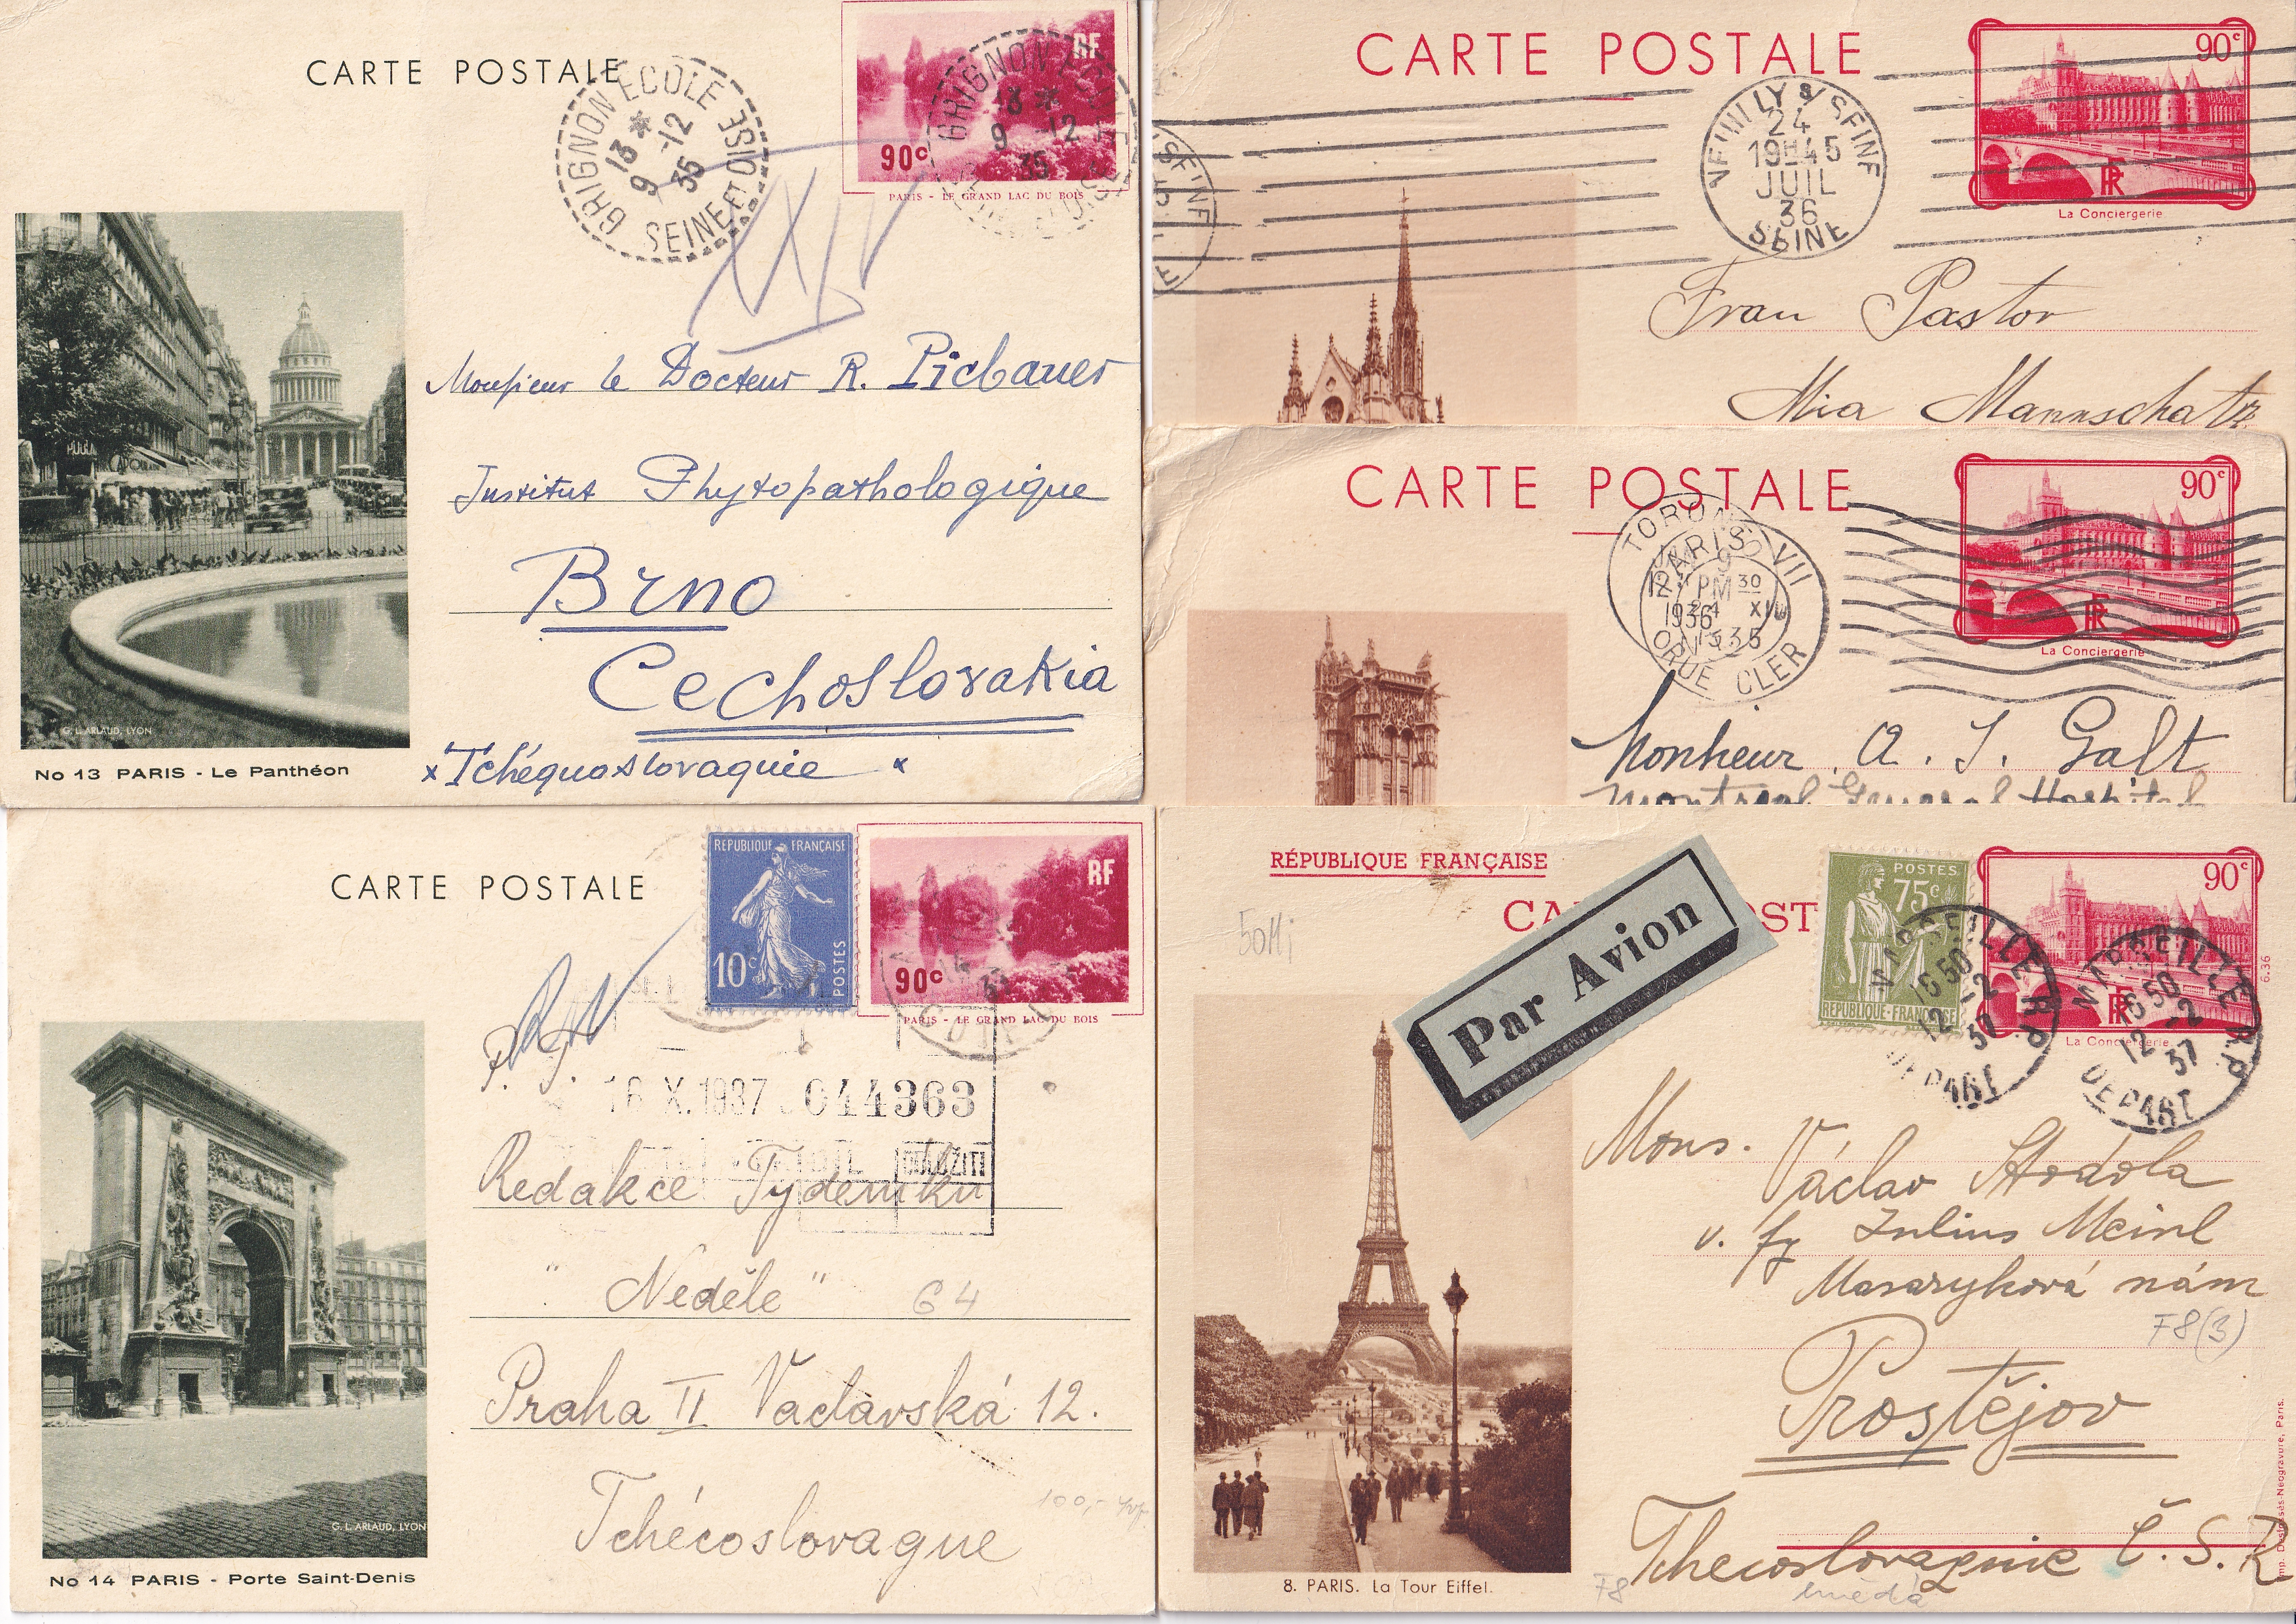 CARTE POSTALE
GRIGNON ECOLE
13 *
9 -12
35
SEINE ET OISE
RF
GRIGNON ECOLE
13 *
9 -12
35
90c
PARIS - LE GRAND LAC DU BOIS
Monsieur le Docteur R. Picbauer
Institut Phytopathologique
Brno
Cechoslovakia
×Tchéquoslovaquie ×
G. L. ARLAUD, LYON
No 13 PARIS - Le Panthéon
CARTE POSTALE
90c
NEUILLY S/ SEINE
24
19H45
JUIL
36
SEINE
La Conciergerie
Frau Pastor
Mia Mannschatz
CARTE POSTALE
90c
PARIS VII
RUE CLER
PM
1936
La Conciergerie
Monsieur A. J. Galt
Montreal General Hospital
CARTE POSTALE
REPUBLIQUE FRANÇAISE
10c
POSTES
RF
90c
PARIS - LE GRAND LAC DU BOIS
X.1937 044363
Redakce Tydeniku
"Neděle" 64
Praha II Vaclavská 12.
Tchécoslovaque
G. L. ARLAUD, LYON
No 14 PARIS - Porte Saint-Denis
RÉPUBLIQUE FRANÇAISE
Par Avion
POSTES
75c
REPUBLIQUE-FRANÇAISE
90c
MARSEILLE R.P.
16 50
12 -2
37
DEPART
MARSEILLE R.P.
16 50
12 -2
37
DEPART
La Conciergerie
6.36
Mons.
Václav Stodola
v. fy Julius Meinl
Masaryková nám
F8(3)
Prostějov
Thecoslovaquie Č.S.R
F8
hnědá
8. PARIS. La Tour Eiffel.